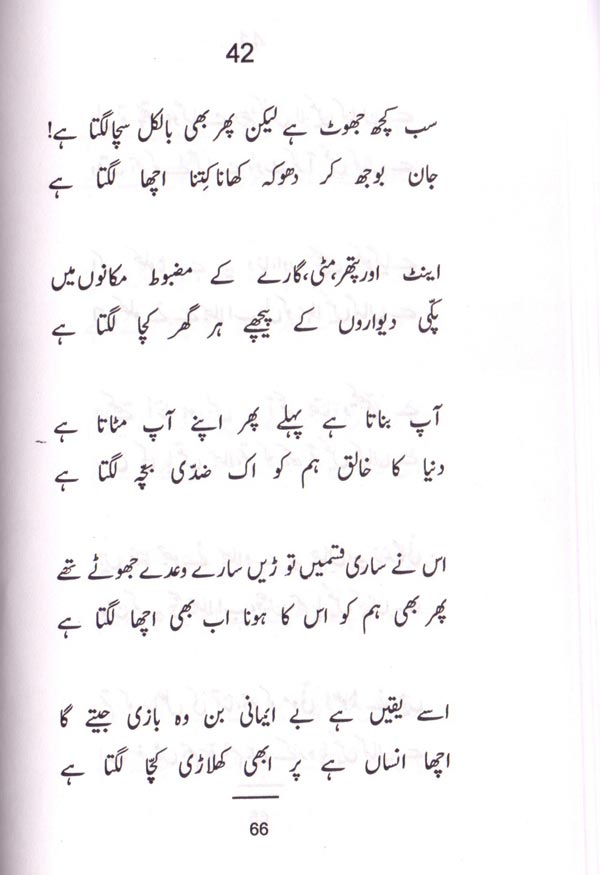 42
سب کچھ جھوٹ ہے لیکن پھر بھی بالکل سچا لگتا ہے!
جان بوجھ کر دھوکہ کھانا کِتنا اچھا لگتا ہے
اینٹ اور پتھر، مٹی، گارے کے مضبوط مکانوں میں
پکّی دیواروں کے پیچھے ہر گھر کچا لگتا ہے
آپ بناتا ہے پہلے پھر اپنے آپ مٹاتا ہے
دنیا کا خالق ہم کو اک ضدّی بچّہ لگتا ہے
اس نے ساری قسمیں توڑیں سارے وعدے جھوٹے تھے
پھر بھی ہم کو اس کا ہونا اب بھی اچھا لگتا ہے
اسے یقیں ہے بے ایمانی بن وہ بازی جیتے گا
اچھا انساں ہے پر ابھی کھلاڑی کچّا لگتا ہے
66